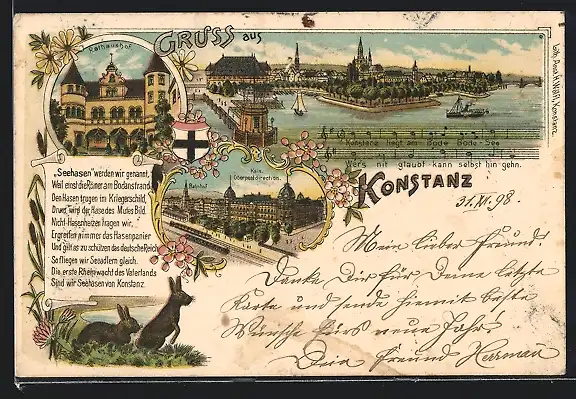 Rathaushof.
GRUSS aus
Konstanz liegt am Bode Bode-See
Wer's nit glaubt kann selbst hin gehn.
KONSTANZ
"Seehasen" werden wir genannt,
Weil einst die Römer am Bodanstrand
Den Hasen trugen im Kriegerschild,
Drum wird der Hase des Mutes Bild.
Nicht Hasenherzen tragen wir,
Ergreifen nimmer das Hasenpanier
Und gilt es zu schützen das deutsche Reich
So fliegen wir Seeadlern gleich.
Die erste Rheinwacht des Vaterlands
Sind wir Seehasen von Konstanz.
Bahnhof
Kais.
Oberpostdirection.
31.XII.98
Mein lieber Freund!
Danke Dir für Deine letzte
Karte und sende hiemit beste
Wünsche fürs neue Jahr!
Dein Freund Herrmann
Konstanz.